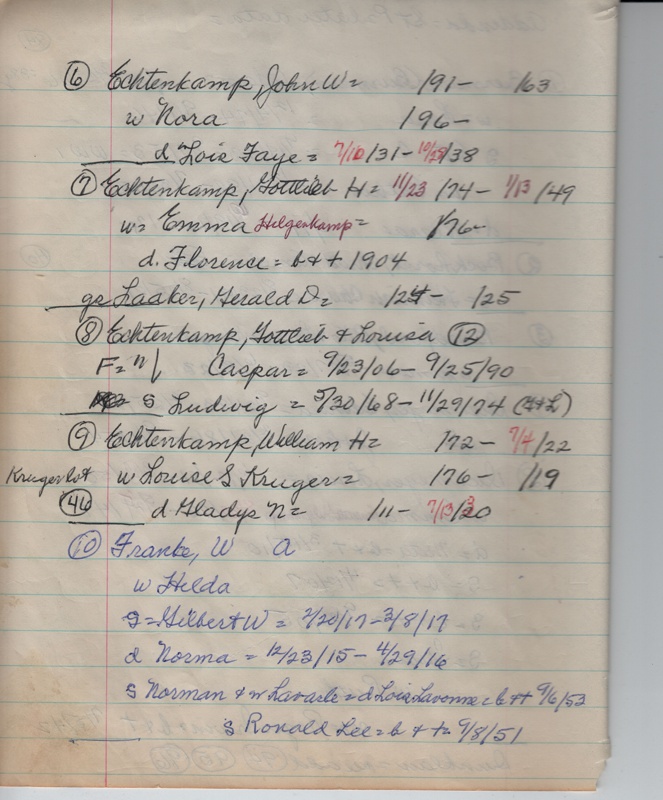 ⑥ Echtenkamp, John W = /91- /63
w Nora /96-
d Lois Faye = 7/10/31 - 10/29/38
⑦ Echtenkamp, Gottlieb H = 11/23/74 - 1/13/49
w = Emma Helgenkamp = /76-
d. Florence = b & + 1904
gs Laaker, Gerald D = /24 - /25
⑧ Echtenkamp, Gottlieb & Louisa ⑫
F = Caspar = 9/23/06 - 9/25/90
s Ludwig = 5/30/68 - 11/29/74 (G & L)
⑨ Echtenkamp, William H = /72 - 7/4/22
Kruger lot w Louise S Kruger = /76 - /19
㊻ d Gladys N = /11 - 7/13/20
⑩ Franke, W A
w Hilda
s = Gilbert W = 2/20/17 - 3/8/17
d Norma = 12/23/15 - 4/29/16
s Norman & w Lavarle = d Lois Lavonne = b & + 9/6/53
s Ronald Lee = b & + = 9/8/51